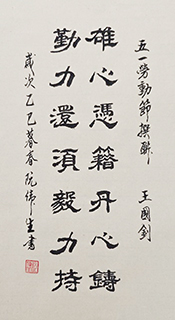 五一勞動節撰酬　王國釗
雄心憑籍丹心鑄
勤力還須毅力持
歲次乙巳暮春阮偉生書